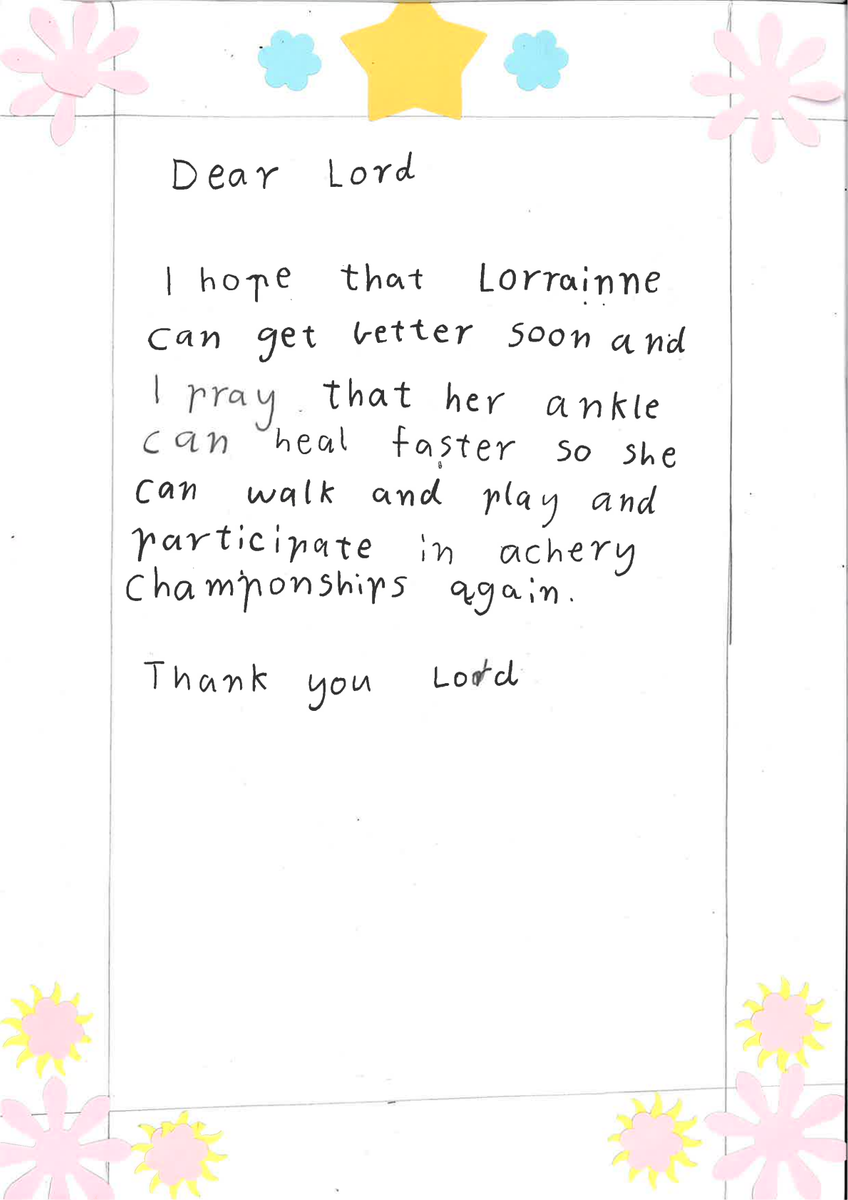 Dear Lord
I hope that Lorrainne
can get better soon and
I pray that her ankle
can heal faster so she
can walk and play and
participate in achery
champonships again.
Thank you Lord